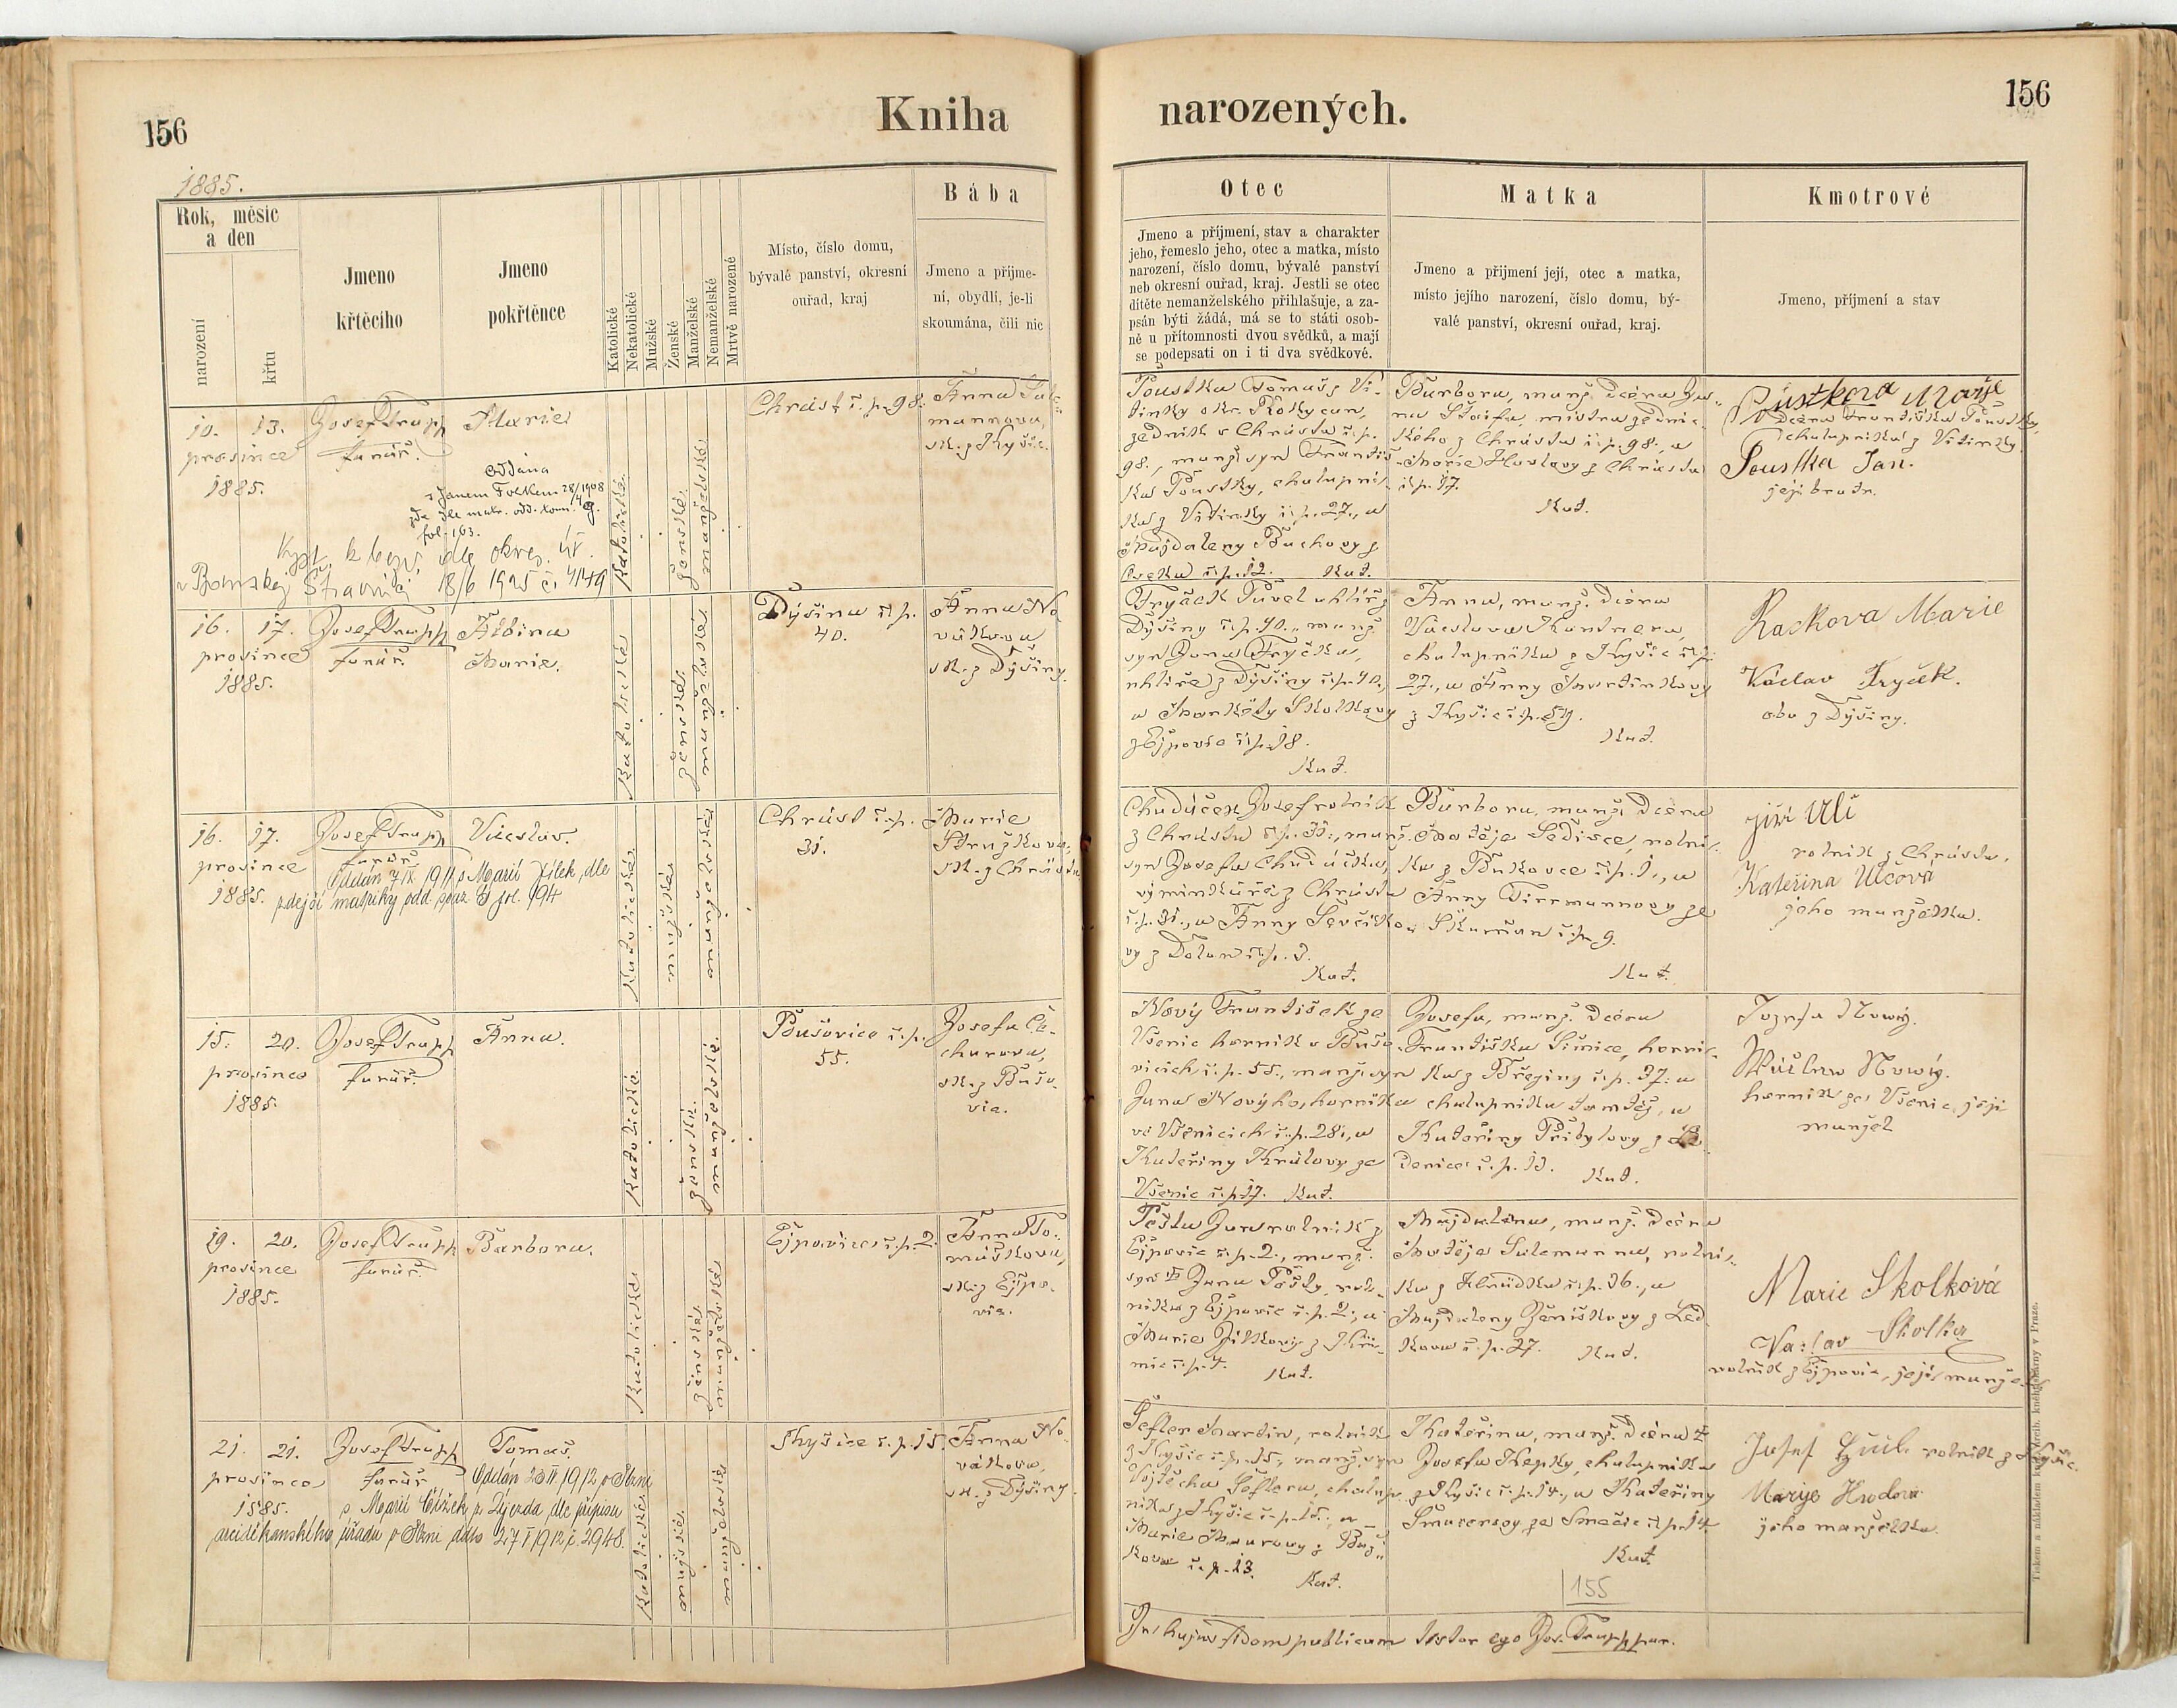 156
Kniha
narozených.
156
1885.
Rok, měsíc
a den
narození
křtu
Jmeno
křtěcího
Jmeno
pokřtěnce
Katolické
Nekatolické
Mužské
Ženské
Manželské
Nemanželské
Mrtvě narozené
Místo, číslo domu,
bývalé panství, okresní
ouřad, kraj
Bába
Jmeno a příjme-
ní, obydlí, je-li
skoumána, čili nic
Otec
Jmeno a příjmení, stav a charakter
jeho, řemeslo jeho, otec a matka, místo
narození, číslo domu, bývalé panství
neb okresní ouřad, kraj. Jestli se otec
dítěte nemanželského přihlašuje, a za-
psán býti žádá, má se to státi osob-
ně u přítomnosti dvou svědků, a mají
se podepsati on i ti dva svědkové.
Matka
Jmeno a přijmení její, otec a matka,
místo jejího narození, číslo domu, bý-
valé panství, okresní ouřad, kraj.
Kmotrové
Jmeno, příjmení a stav
10. 13.
prosince
1885.
Josef Trapp
farář.
Marie
oddána
s Janem Folkem 28/4 1908
zde dle matr. odd. tom. 9.
fol. 163.
18/6 1925 č. 4149
Katolické
ženské
manželské
Chrást č. p. 98.
Anna
mannova,
zk. z Kyšic.
Poustka Tomáš z Vi-
tinky okr. Rokycan,
zedník v Chrástu č. p.
98., manž. syn Františ-
ka Poustky, chalupní-
ka z Vitinky č. p. 27., a
Magdaleny Buchovy z
č. p. 12. Kat.
Barbora, manž. dcera Ja-
na mistra zednic-
kého z Chrástu č. p. 98., a
Marie Havlovy z Chrástu
č. p. 17.
Kat.
Poustkova Marje
dcera Františka Poustky,
chalupníka z Vitinky
Poustka Jan.
její bratr.
16. 17.
prosince
1885.
Josef Trapp
farář.
Albina
Marie.
Katolické
ženské
manželské
Dýšina č. p.
40.
Anna No-
vákova
zk. z Dýšiny.
Fryček Pavel uhlíř z
Dýšiny č. p. 40., manž.
syn Jana Fryčka,
uhlíře z Dýšiny č. p. 40.,
a Markéty Skolkovy
z Ejpovic č. p. 18.
Kat.
Anna, manž. dcera
Václava
chalupníka z Kyšic č. p.
27., a Anny Martínkovy
z Kyšic č. p. 59.
Kat.
Rackova Marie
Václav Fryček.
oba z Dýšiny.
16. 17.
prosince
1885.
Josef Trapp
farář
Václav.
Oddán 7/IX 1911 s Marií Jílek, dle
zdejší matriky odd. fol. 194
Katolické
mužské
manželské
Chrást č. p.
31.
Marie
Stružkova,
zk. z Chrástu
Chudáček Josef rolník
z Chrástu č. p. 31., manž.
syn Josefa Chudáčka,
výminkáře z Chrástu
č. p. 31., a Anny Ševčíko-
vy z Dolan č. p. 3.
Kat.
Barbora, manž. dcera
Matěje Sedivce, rolní-
ka z Bukovce č. p. 1., a
Anny Tirrmannovy ze
Škurňan č. p. 9.
Kat.
jiří Ulč
rolník z Chrástu,
Kateřina Ulčova
jeho manželka.
15. 20.
prosince
1885.
Josef Trapp
farář.
Anna.
Katolické
ženské
manželské
Bušovice č. p.
55.
Josefa Če-
charova,
zk. z Bušo-
vic.
Nový František ze
Všenic horník v Bušo-
vicích č. p. 55., manž. syn
Jana Nového, horníka
ve Všenicích č. p. 28., a
Kateřiny Královy ze
Všenic č. p. 17. Kat.
Josefa, manž. dcera
Františka Šimice, horní-
ka z Březiny č. p. 37. a
chalupníka tamtéž, a
Kateřiny Přibylovy z
č. p. 13. Kat.
Jozefa Nowý.
Wáclaw Nowý.
horník ze Všenic, její
manžel
19. 20.
prosince
1885.
Josef Trapp
farář.
Barbora.
Katolické
ženské
manželské
Ejpovice č. p. 2.
Anna To-
máškova,
zk. z Ejpo-
vic.
Pešta Jan rolník z
Ejpovic č. p. 2., manž.
syn Jana Pešty, rol-
níka z Ejpovic č. p. 2., a
Marie Jílkovy z
č. p. 4. Kat.
Magdalena, manž. dcera
Matěje Sulemanna, rolní-
ka z Hrádku č. p. 36., a
Magdaleny Ženíškovy z Led-
kova č. p. 27. Kat.
Marie Skolková
Vaclav Skolka
rolník z Ejpovic, její manžel
21. 21.
prosince
1885.
Josef Trapp
farář
Tomáš.
Oddán 1912 v Plzni
s Marií Čížek z Újezda, dle přípisu
arciděkanského úřadu v Plzni ddto 27/I 1912 č. 2948.
Katolické
mužské
manželské
Kyšice č. p. 15.
Anna No-
vákova,
zk. z Dýšiny.
Šefler Martin, rolník
z Kyšic č. p. 15., manž. syn
Vojtěcha Šeflera, chalup-
níka z Kyšic č. p. 15., a
Marie Maurovy z
č. p. 13. Kat.
Kateřina, manž. dcera
Josefa Krepky, chalupníka
z Kyšic č. p. 14., a Kateřiny
ze Smědčic č. p. 14.
Kat.
Josef rolník z Kyšic.
Marye Hodova
jeho manželka.
155
In hujus fidem publicam testor ego Jos. Trapp par.